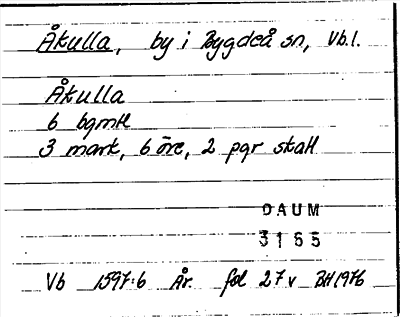 Åkulla, by i Bygdeå sn, Vb.l.
Åkulla
6 bgmtl
3 mark, 6 öre, 2 pgr skatt
DAUM
3165
Vb 1597:6 År. fol 27 v BH 1976